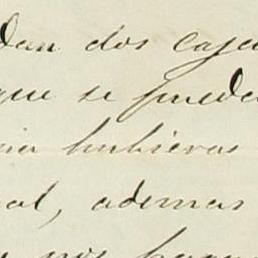 dan dos caja
que se pueda
hubieras
al, ademas
nos